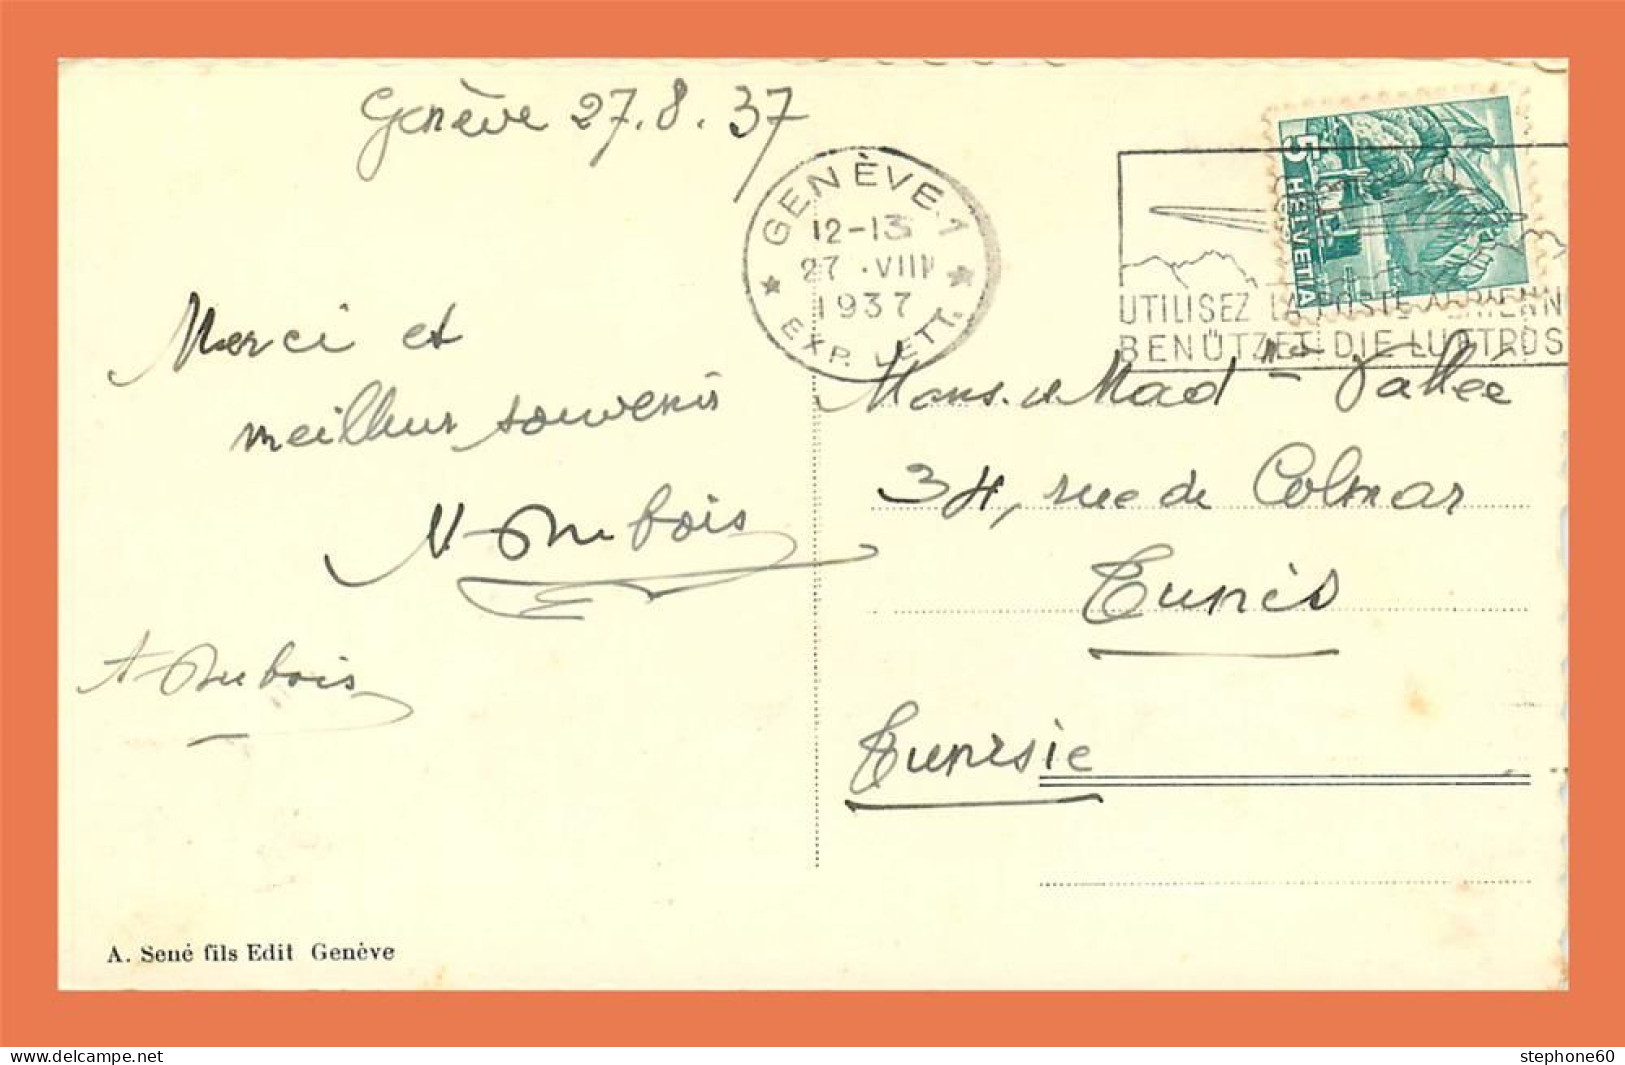 Genève 27.8.37
GENÈVE 1
12-13
27.VIII
1937
EXP. LETT.
5 HELVETIA
UTILISEZ LA POSTE AÉRIENN
BENÜTZET DIE LUFTPOS
Merci et
meilleur souvenir
N. Dubois
A Dubois
Mons. et Mad Vallée
34, rue de Colmar
Tunis
Tunisie
A. Sené fils Edit Genève
www.delcampe.net
stephone60